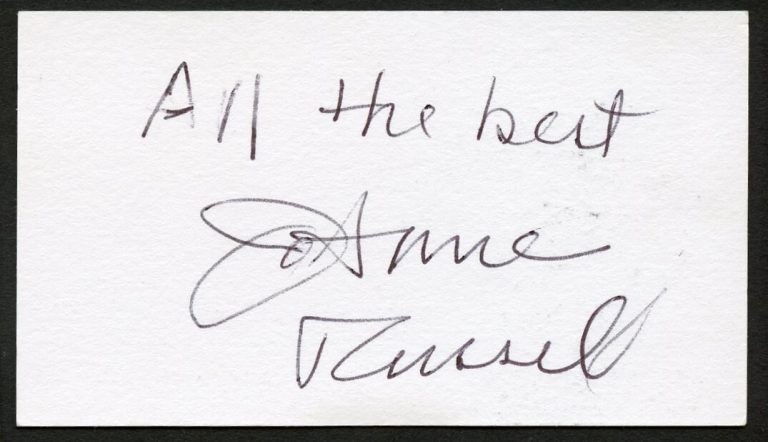 All the best
JoAnne
Russell